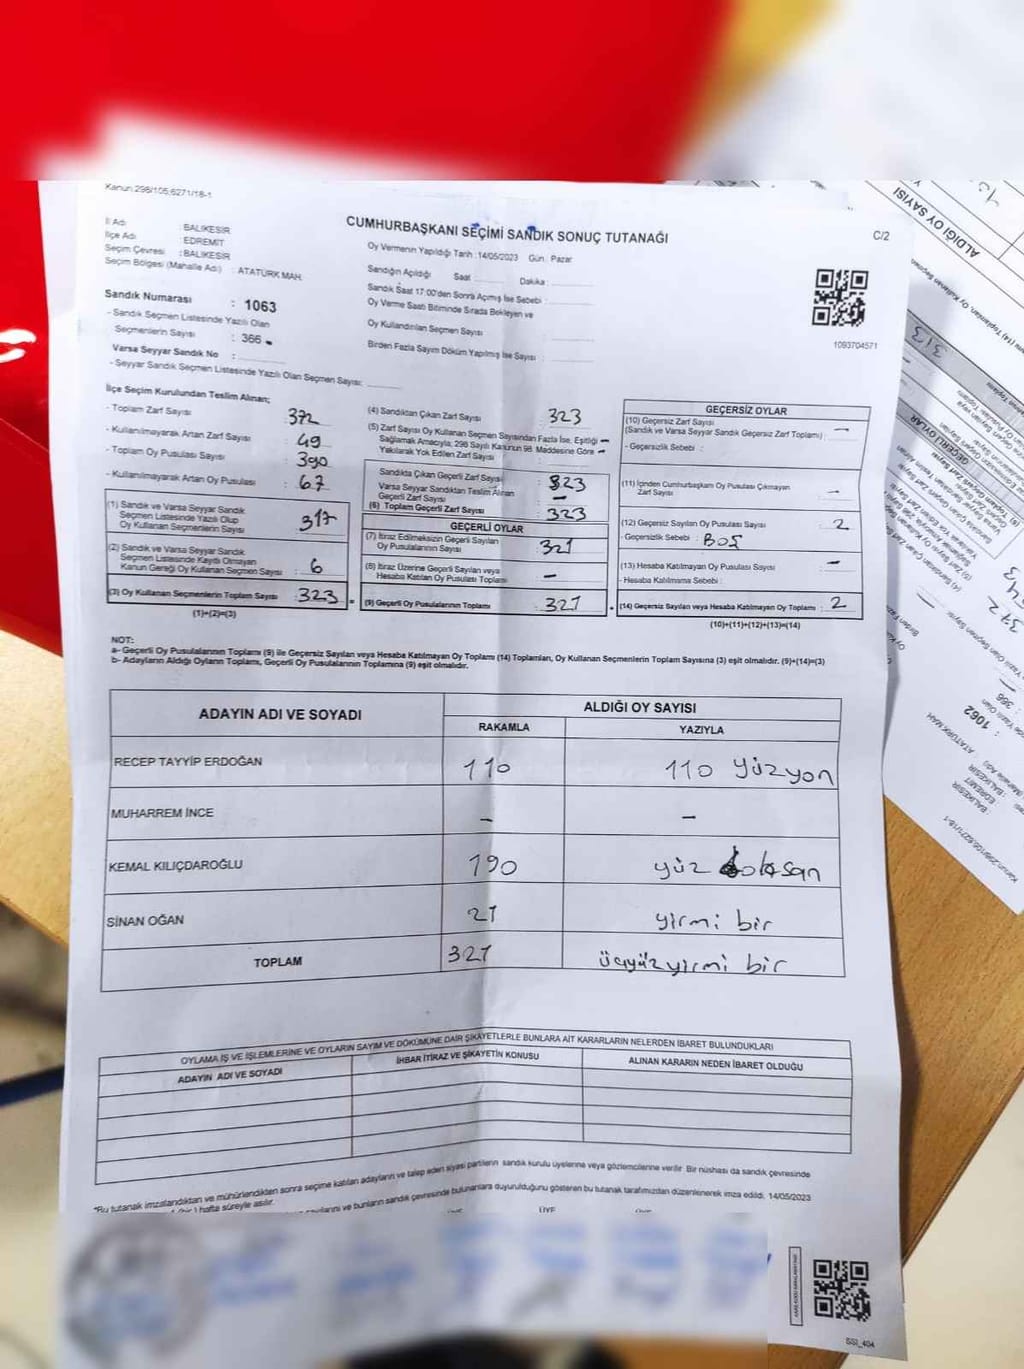 Kanun:298/105;6271/18-1
CUMHURBAŞKANI SEÇİMİ SANDIK SONUÇ TUTANAĞI
C/2
İl Adı : BALIKESİR
İlçe Adı : EDREMİT
Seçim Çevresi : BALIKESİR
Seçim Bölgesi (Mahalle Adı) : ATATÜRK MAH.
Sandık Numarası : 1063
- Sandık Seçmen Listesinde Yazılı Olan
Seçmenlerin Sayısı : 366
Varsa Seyyar Sandık No :
- Seyyar Sandık Seçmen Listesinde Yazılı Olan Seçmen Sayısı:
Oy Vermenin Yapıldığı Tarih :14/05/2023 Gün: Pazar
Sandığın Açıldığı Saat Dakika :
Sandık Saat 17:00'den Sonra Açımış İse Sebebi :
Oy Verme Saati Bitiminde Sırada Bekleyen ve
Oy Kullandırılan Seçmen Sayısı
Birden Fazla Sayım Döküm Yapılmış İse Sayısı :
1093704571
İlçe Seçim Kurulundan Teslim Alınan;
- Toplam Zarf Sayısı : 372
- Kullanılmayarak Artan Zarf Sayısı : 49
- Toplam Oy Pusulası Sayısı : 390
- Kullanılmayarak Artan Oy Pusulası : 67
(1) Sandık ve Varsa Seyyar Sandık
Seçmen Listesinde Yazılı Olup
Oy Kullanan Seçmenlerin Sayısı : 317
(2) Sandık ve Varsa Seyyar Sandık
Seçmen Listesinde Kayıtlı Olmayan
Kanun Gereği Oy Kullanan Seçmen Sayısı : 6
(3) Oy Kullanan Seçmenlerin Toplam Sayısı : 323
(1)+(2)=(3)
(4) Sandıktan Çıkan Zarf Sayısı : 323
(5) Zarf Sayısı Oy Kullanan Seçmen Sayısından Fazla İse, Eşitliği
Sağlamak Amacıyla, 298 Sayılı Kanunun 98. Maddesine Göre
Yakılarak Yok Edilen Zarf Sayısı : —
Sandıkta Çıkan Geçerli Zarf Sayısı : 323
Varsa Seyyar Sandıktan Teslim Alınan
Geçerli Zarf Sayısı : —
(6) Toplam Geçerli Zarf Sayısı : 323
GEÇERLİ OYLAR
(7) İtiraz Edilmeksizin Geçerli Sayılan
Oy Pusulalarının Sayısı : 321
(8) İtiraz Üzerine Geçerli Sayılan veya
Hesaba Katılan Oy Pusulası Toplamı : —
(9) Geçerli Oy Pusulalarının Toplamı : 321
GEÇERSİZ OYLAR
(10) Geçersiz Zarf Sayısı
(Sandık ve Varsa Seyyar Sandık Geçersiz Zarf Toplamı) : —
- Geçersizlik Sebebi :
(11) İçinden Cumhurbaşkanı Oy Pusulası Çıkmayan
Zarf Sayısı : —
(12) Geçersiz Sayılan Oy Pusulası Sayısı : 2
- Geçersizlik Sebebi : BOŞ
(13) Hesaba Katılmayan Oy Pusulası Sayısı : —
- Hesaba Katılmama Sebebi :
(14) Geçersiz Sayılan veya Hesaba Katılmayan Oy Toplamı : 2
(10)+(11)+(12)+(13)=(14)
NOT:
a- Geçerli Oy Pusulalarının Toplamı (9) ile Geçersiz Sayılan veya Hesaba Katılmayan Oy Toplamı (14) Toplamları, Oy Kullanan Seçmenlerin Toplam Sayısına (3) eşit olmalıdır. (9)+(14)=(3)
b- Adayların Aldığı Oyların Toplamı, Geçerli Oy Pusulalarının Toplamına (9) eşit olmalıdır.
ADAYIN ADI VE SOYADI ALDIĞI OY SAYISI
RAKAMLA YAZIYLA
RECEP TAYYİP ERDOĞAN 110 110 yüzyon
MUHARREM İNCE — —
KEMAL KILIÇDAROĞLU 190 yüz doksan
SİNAN OĞAN 21 yirmi bir
TOPLAM 321 üçyüzyirmi bir
OYLAMA İŞ VE İŞLEMLERİNE VE OYLARIN SAYIM VE DÖKÜMÜNE DAİR ŞİKAYETLERLE BUNLARA AİT KARARLARIN NELERDEN İBARET BULUNDUKLARI
ADAYIN ADI VE SOYADI İHBAR İTİRAZ VE ŞİKAYETİN KONUSU ALINAN KARARIN NEDEN İBARET OLDUĞU
*Bu tutanak imzalandıktan ve mühürlendikten sonra seçime katılan adayların ve talep eden siyasi partilerin sandık kurulu üyelerine veya gözlemcilerine verilir. Bir nüshası da sandık çevresinde
(bir) hafta süreyle asılır.
ve bunların sandık çevresinde bulunanlara duyurulduğunu gösteren bu tutanak tarafımızdan düzenlenerek imza edildi. 14/05/2023
ÜYE
SSI_404
ALDIĞI OY SAYISI
313
GEÇERLİ OYLAR
372
366
: 1062
ATATÜRK MAH
: BALIKESİR
: EDREMİT
: BALIKESİR
Kanun:298/105;6271/18-1